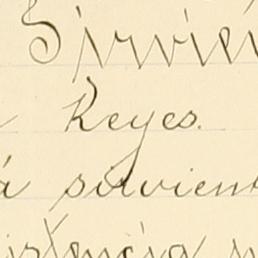 Sirvien
Reyes.
á sirvient
istencia